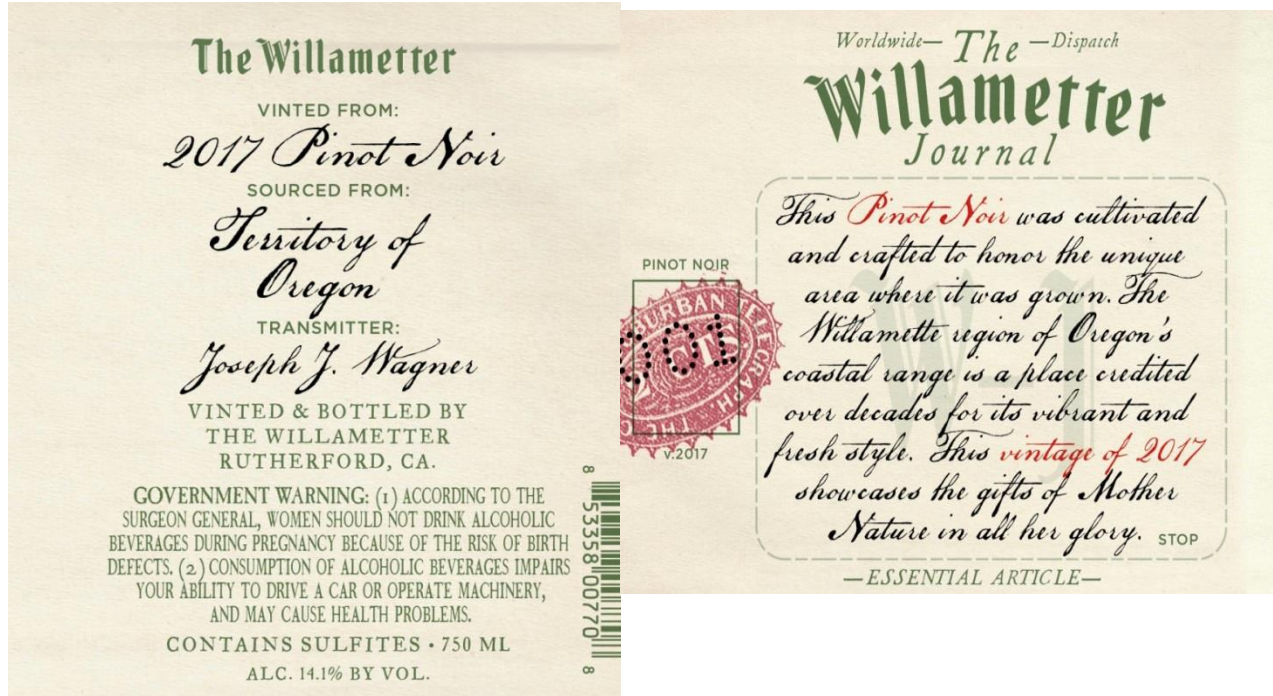 The Willametter
VINTED FROM:
2017 Pinot Noir
SOURCED FROM:
Territory of
Oregon
TRANSMITTER:
Joseph J. Wagner
VINTED & BOTTLED BY
THE WILLAMETTER
RUTHERFORD, CA.
GOVERNMENT WARNING: (1) ACCORDING TO THE
SURGEON GENERAL, WOMEN SHOULD NOT DRINK ALCOHOLIC
BEVERAGES DURING PREGNANCY BECAUSE OF THE RISK OF BIRTH
DEFECTS. (2) CONSUMPTION OF ALCOHOLIC BEVERAGES IMPAIRS
YOUR ABILITY TO DRIVE A CAR OR OPERATE MACHINERY,
AND MAY CAUSE HEALTH PROBLEMS.
CONTAINS SULFITES • 750 ML
ALC. 14.1% BY VOL.
8 53358 00770 8
Worldwide— The —Dispatch
Willametter
Journal
PINOT NOIR
BURBAN TELEGRAPH. THE
001
v.2017
WJ
This Pinot Noir was cultivated
and crafted to honor the unique
area where it was grown. The
Willamette region of Oregon's
coastal range is a place credited
over decades for its vibrant and
fresh style. This vintage of 2017
showcases the gifts of Mother
Nature in all her glory. STOP
—ESSENTIAL ARTICLE—